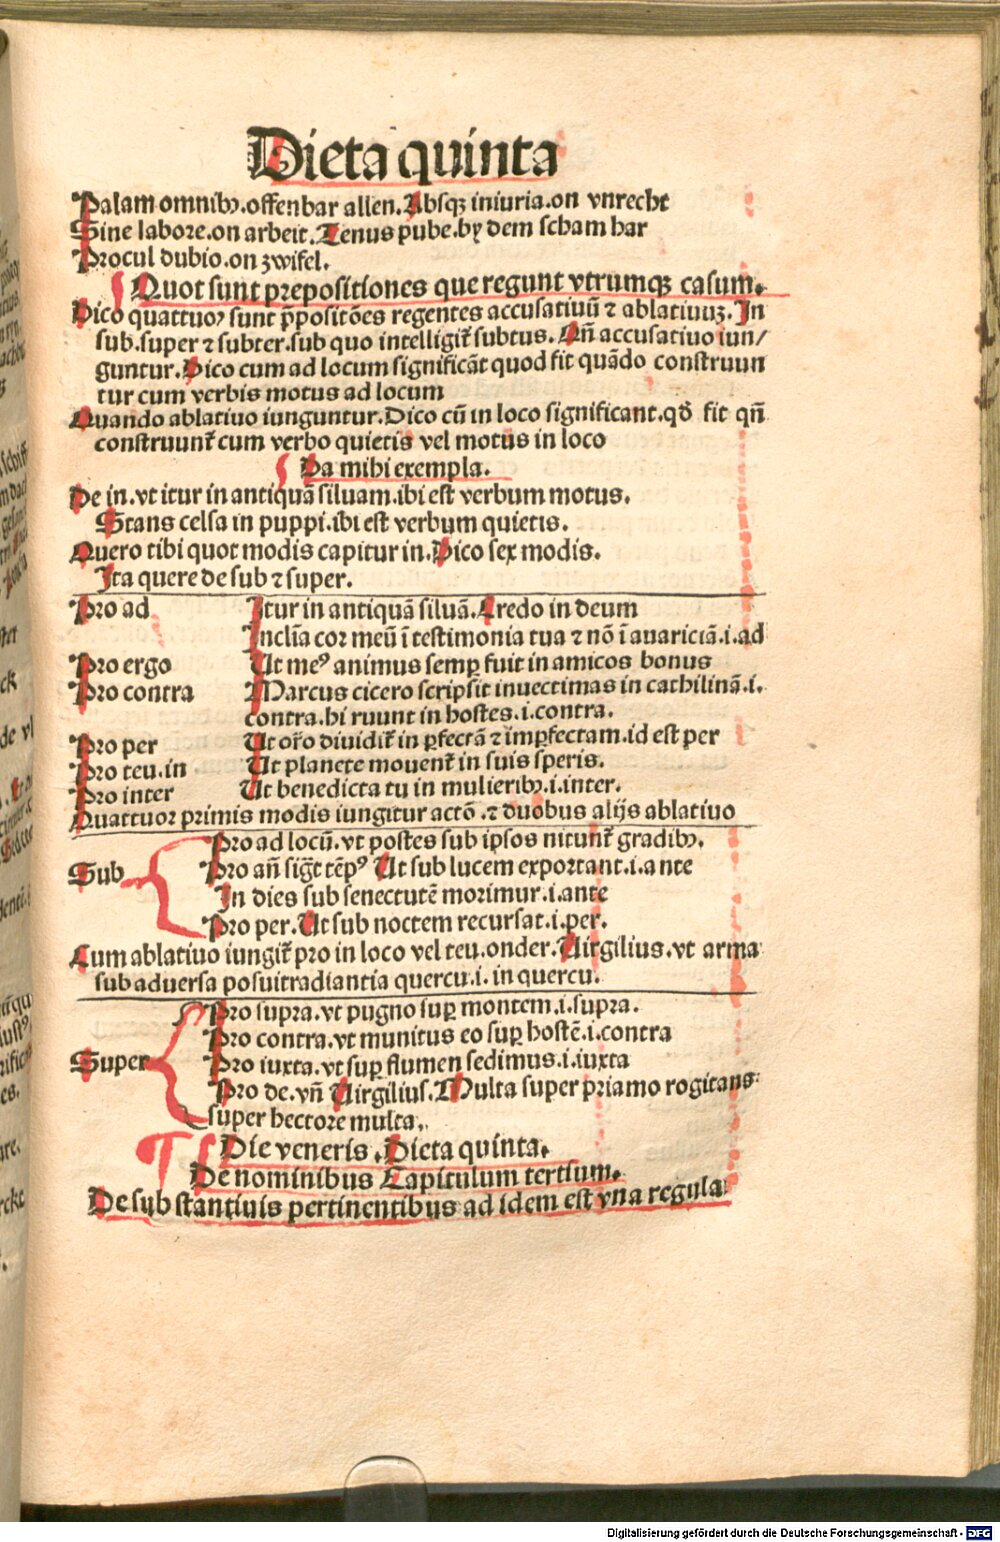 Dieta quinta
Palam omnibꝫ.offenbar allen.Absqꝫ iniuria.on vnrecht
Sine labore.on arbeit.Tenus pube.by dem scham har
Procul dubio.on zwifel.
Quot sunt prepositiones que regunt vtrumqꝫ casum.
Dico quattuor sunt p̄positōes regentes accusatiuū ⁊ ablatiuuꝫ.In
sub.super ⁊ subter.sub quo intelligit᷑ subtus.Qn̄ accusatiuo iun/
guntur.Dico cum ad locum significāt quod fit quādo construun
tur cum verbis motus ad locum
Quando ablatiuo iunguntur.Dico cū in loco significant.qd̄ fit qn̄
construunt᷑ cum verbo quietis vel motus in loco
Da mihi exempla.
De in.vt itur in antiquā siluam.ibi est verbum motus.
Stans celsa in puppi.ibi est verbum quietis.
Quero tibi quot modis capitur in.Dico sex modis.
Ita quere de sub ⁊ super.
Pro ad Itur in antiquā siluā.Credo in deum
Inclīa cor meū ī testimonia tua ⁊ nō ī auariciā.i.ad
Pro ergo Ut meꝰ animus semꝑ fuit in amicos bonus
Pro contra Marcus cicero scripsit inuectimas in cathilinā.i.
contra.hi ruunt in hostes.i.contra.
Pro per Ut or̄o diuidit᷑ in ꝑfectā ⁊ imꝑfectam.id est per
Pro teu.in Ut planete mouent᷑ in suis speris.
Pro inter Ut benedicta tu in mulieribꝫ.i.inter.
Quattuor primis modis iungitur actō.⁊ duobus alijs ablatiuo
Sub
Pro ad locū.vt postes sub ipsos nitunt᷑ gradibꝫ.
Pro an̄ siḡt tēpꝰ Ut sub lucem exportant.i.ante
In dies sub senectutē morimur.i.ante
Pro per.Ut sub noctem recursat.i.per.
Cum ablatiuo iungit᷑ pro in loco vel teu.onder.Uirgilius.vt arma
sub aduersa posuitradiantia quercu.i.in quercu.
Super
Pro supra.vt pugno suꝑ montem.i.supra.
Pro contra.vt munitus eo suꝑ hostē.i.contra
Pro iuxta.vt suꝑ flumen sedimus.i.iuxta
Pro de.vn̄ Uirgilius.Multa super priamo rogitans
super hectore multa.
Die veneris.Dieta quinta.
De nominibus Capitulum tertium.
De substantiuis pertinentibus ad idem est vna regula
Digitalisierung gefördert durch die Deutsche Forschungsgemeinschaft - DFG